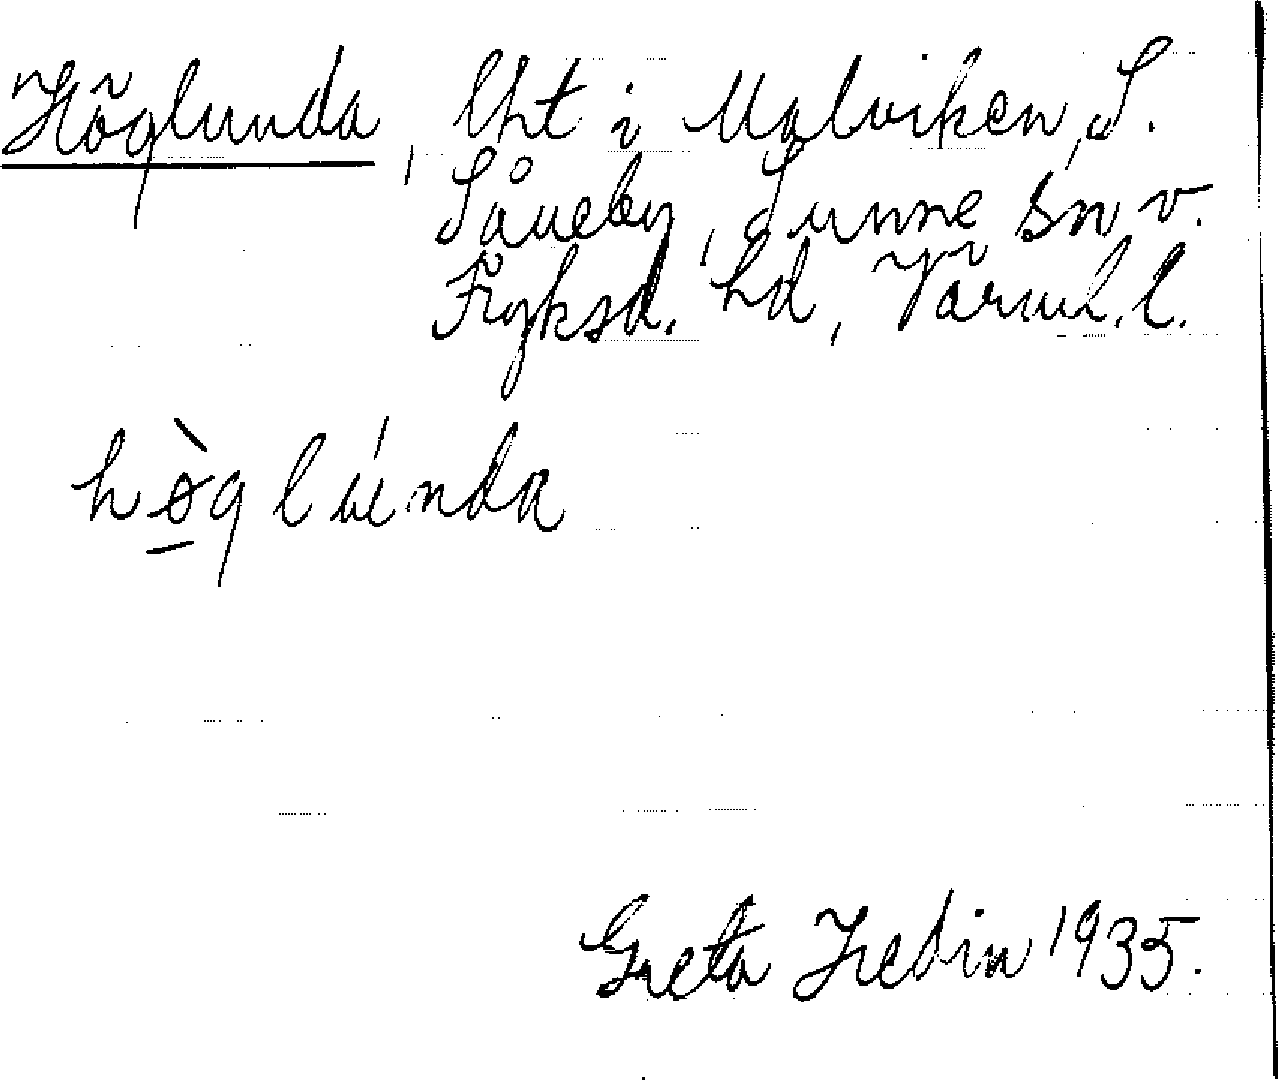 Höglunda, lht i Ulvviken, S.
Såneby, Sunne sn v.
Fryksd. hd, Värml. l.
hø̀glúnda
Greta Hedin 1935.